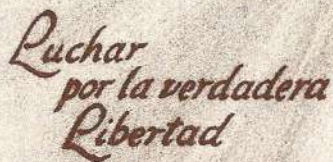 Luchar
por la verdadera
Libertad